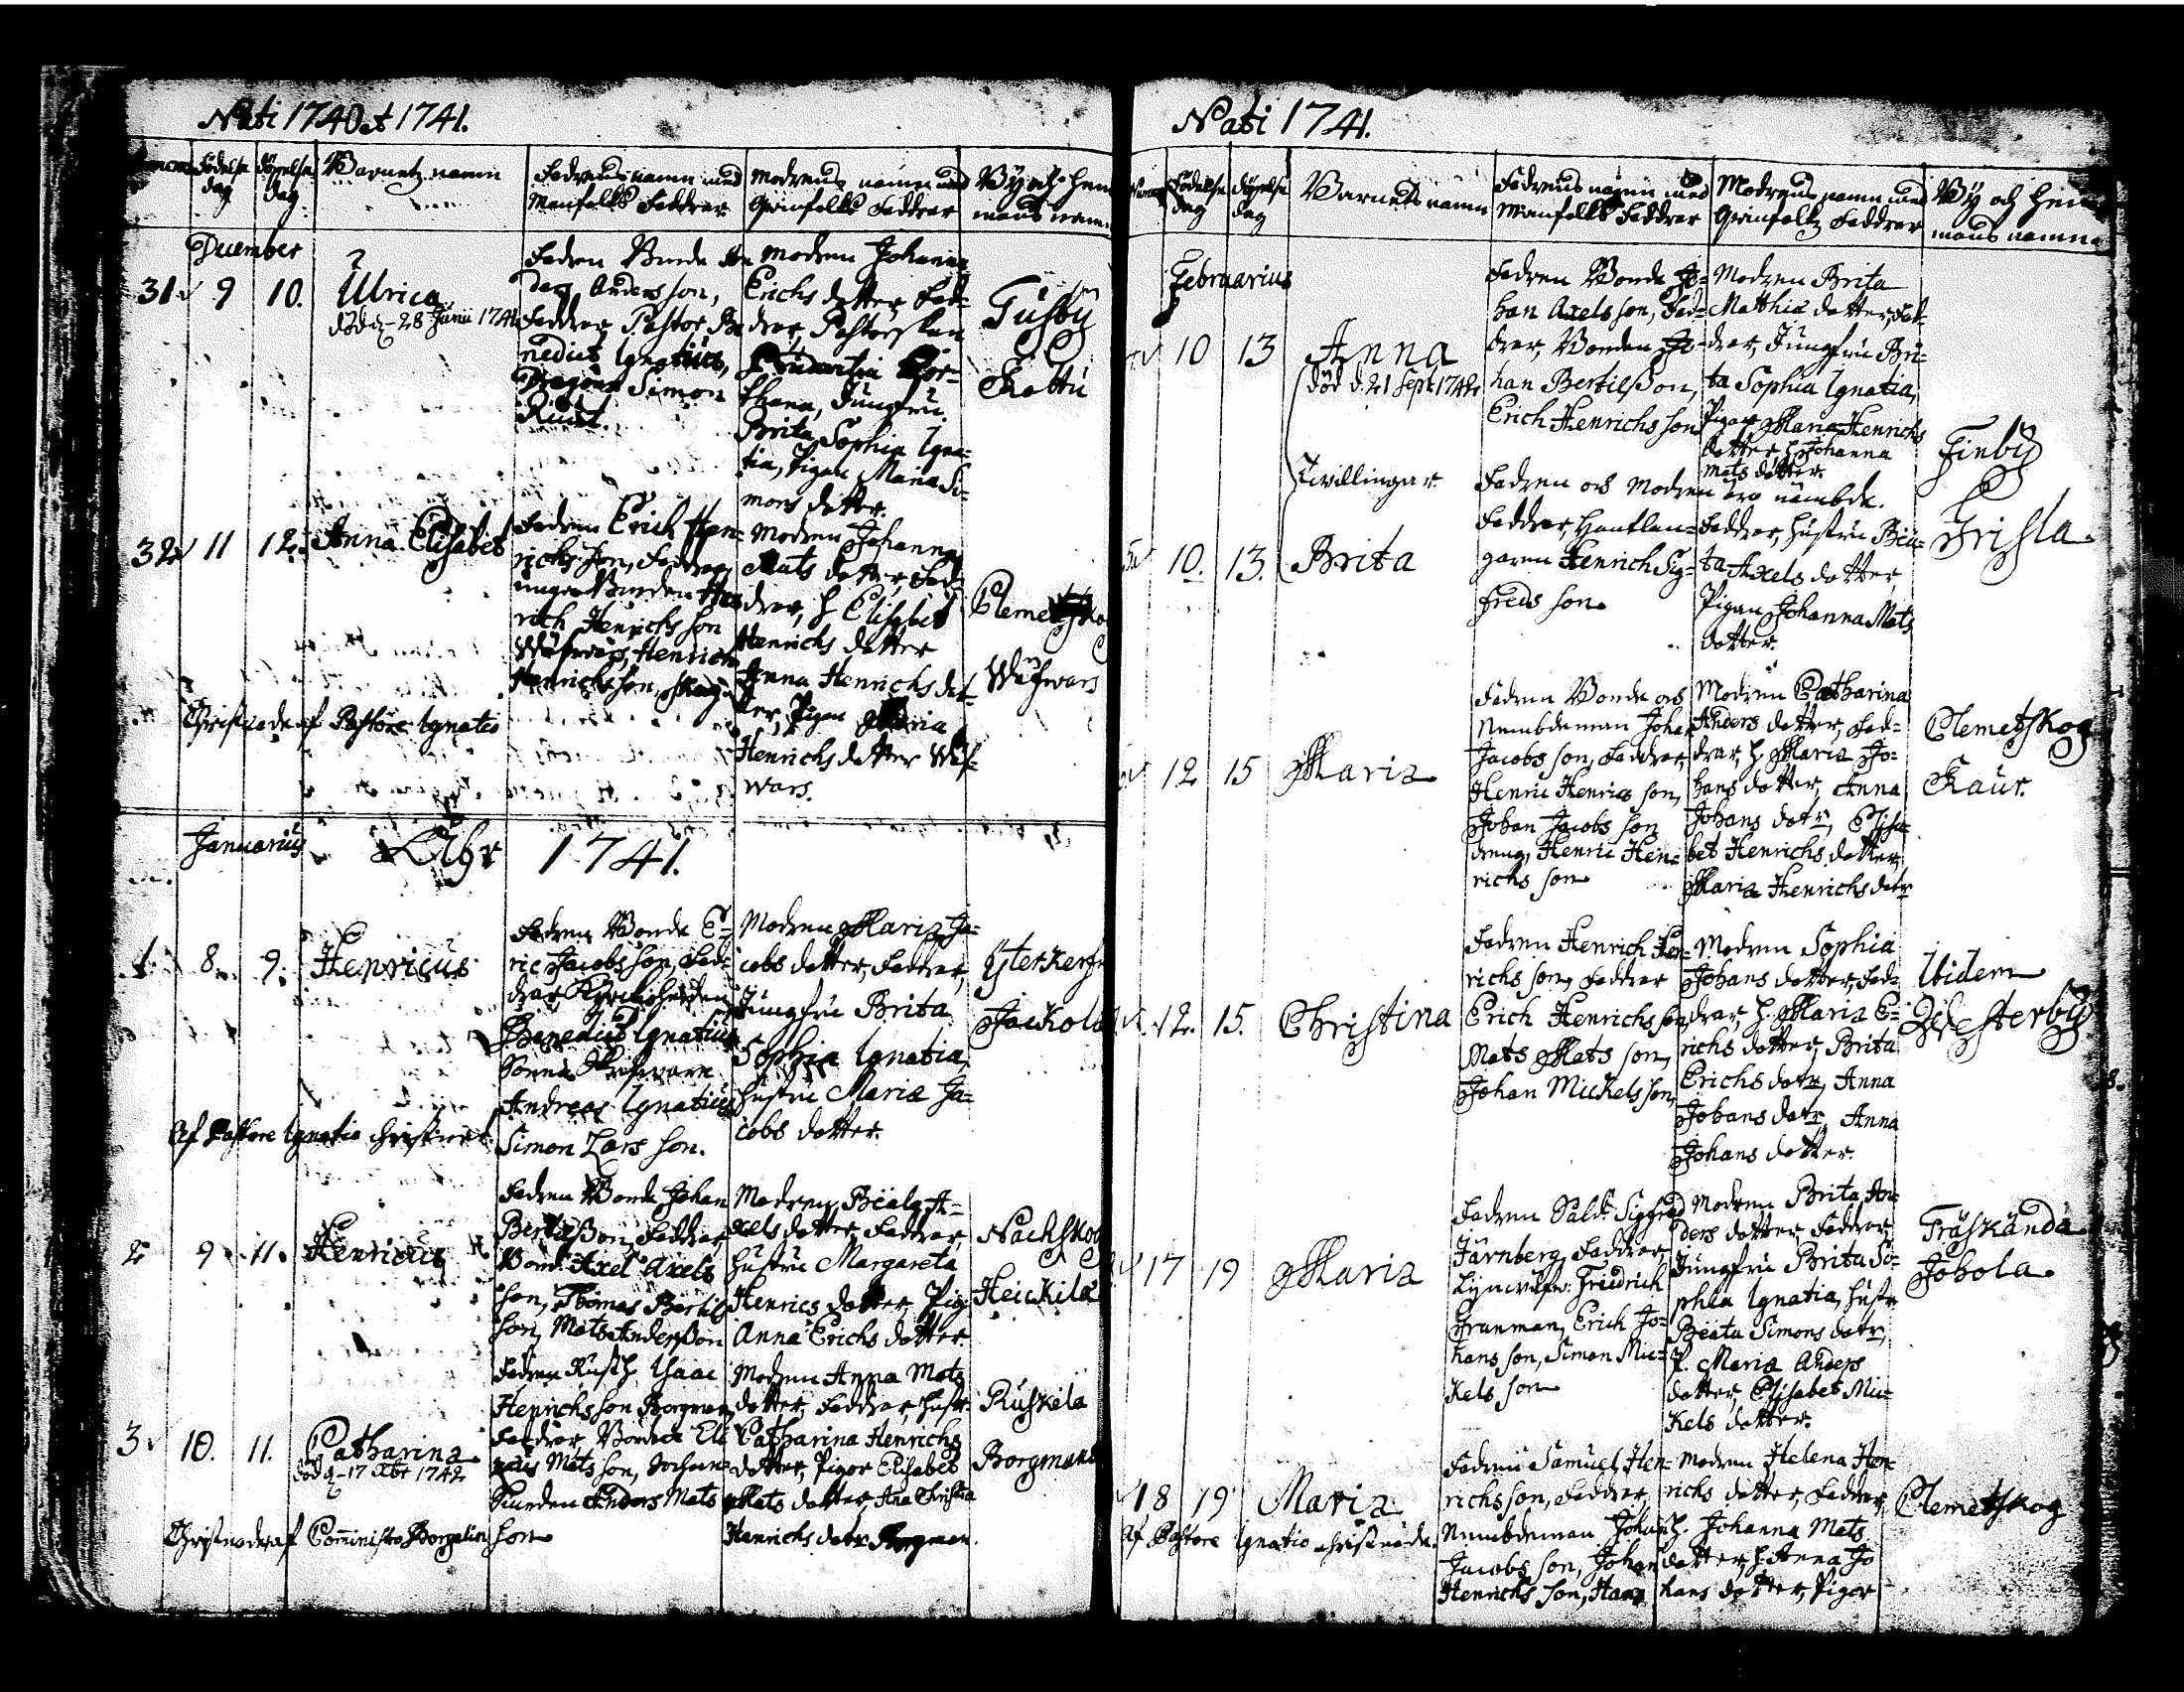 Nati 1740 et 1741.
Födelse dag
döpelse dag
Barnetz namn
Fadrens namn med
Manfolks Faddrar
Modrens namn med
Qvinfolks Faddrar
By och hem
mans namn
December
31 9 10. Ulrica
död d. 28 Junii 1741
Fadren Bonde An
ders Andersson,
Faddrar Pastor Be
nedict Ignatius,
Dragoun Simon
Modren Johanna
Erichs dotter, Fad-
drar, Pastorskan
thana, Jungfru
Brita Sophia Igna-
tia, Pigan Maria Si-
mons dotter.
Tusby
Skattu
32 11 12. Anna Elisabet
Fadren Erich Hen-
richsson, Faddrar
unga Bonden Hen
rich Henrichsson
Wäfwars, Henrich
Henrichsson, Skog
Modren Johanna
Mats dotter, Fad-
drar, h Elisabet
Henrichs dotter
Anna Henrichs dot-
ter, Pigan Maria
Henrichs dotter Wäf-
wars.
Clemetsko
Wäfwars
Christnade af Pastore Ignatio
Januarius
Åhr 1741.
1. 8 9. Henricus
Fadren Bonde E-
ric Jacobsson, Fad-
drar Kyrckioherden
Benedict Ignatius
Andreas Ignatius
Simon Lars son.
Modren Maria Ja-
cobs dotter, Faddrar,
Jungfru Brita
Sophia Ignatia,
hustru Maria Ja-
cobs dotter.
Ysterkers
Jackola
Af Pastore Ignatio christnat
2 9 11. Henricus
Fadren Bonde Johan
Bertilsson, Faddrar,
Bond. Axel Axels
son, Thomas Bertils
son, Mats Andersson
Modren Beata A-
xels dotter, Faddrar,
hustru Margareta
Henrics dotter Pig
Anna Erichs dotter.
Nachskog
Heickilä
3 10. 11. Catharina
död d. 17 Xbr 1742
Fadren Rusth. Isaac
Henrichsson Borgman
Faddrar, Bonden Eli
Mats son,
Anders Mats
son
Modren Anna Mats
dotter, Faddrar, hustr.
Catharina Henrichs
dotter, Pigor Elisabet
Mats dotter, Ana Christina
Henrichs dotr Borgman.
Ruskela
Borgmans
Christnades af Comministro Borgelin
Nati 1741.
Födelse dag
döpelse dag
Barnets namn
Fadrens namn med
Manfolks Faddrar
Modrens namn med
Qvinfolks Faddrar
By och hem
mans namn
Februarius
10 13 Anna
död d. 21 Sept 1742
Fadren Bonde Jo-
han Axels son, Fad-
drar, Bonden Jo-
han Bertilsson,
Erich Henrichs son
Modren Brita
Matthiæ dotter, Fad-
drar, Jungfru Bri-
ta Sophia Ignatia,
Pigan Maria Henrichs
dotter, h Johanna
Mats dotter.
Finby
Frisla
Twillingar
Fadren och Modren äro nämbde.
10. 13. Brita
Faddrar, Hantlan-
garen Henrich Sig-
freds son
Faddrar, hustru Bri-
ta Axels dotter,
Pigan Johanna Mats
dotter.
12 15 Maria
Fadren Bonde och
Nembdeman Johan
Jacobs son, Faddrar,
Henric Henrics son,
Johan Jacobs son
dreng, Henric Hen-
richs son
Modren Catharina
Anders dotter, Fad-
drar, h. Maria Jo-
hans dotter, Anna
Johans dotr, Elisa-
bet Henrichs dotter
Maria Henrichs dotr
Clemetskog
Kaur.
12. 15. Christina
Fadren Henrich Hen-
richs son, Faddrar
Erich Henrichs son,
Mats Mats son,
Johan Mickels son
Modren Sophia
Johans dotter, Fad-
drar, h. Maria E-
richs dotter, Brita
Erichs dotr, Anna
Johans dotr, Anna
Johans dotter.
Ibidem
Westerby
17 19 Maria
Fadren Sald. Sigfred
Järnberg, Faddrar
Fredrich
Granman, Erich Jo-
hans son, Simon Mic-
kels son
Modren Brita An-
ders dotter, Faddrar,
Jungfru Brita So-
phia Ignatia, hustr
Beata Simons dotr,
P. Maria Anders
dotter, Elisabet Mic-
kels dotter.
Träskända
Johola
18 19 Maria
Fadren Samuel Hen-
richs son, Faddrar,
Nembdeman Johan
Jacobs son, Johan
Henrichs son, Hans
Modren Helena Hen
richs dotter, Faddrar,
h. Johanna Mats
dotter, h. Anna Jo
hans dotter, Pigor
Clemetskog
Af Pastore Ignatio christnade.